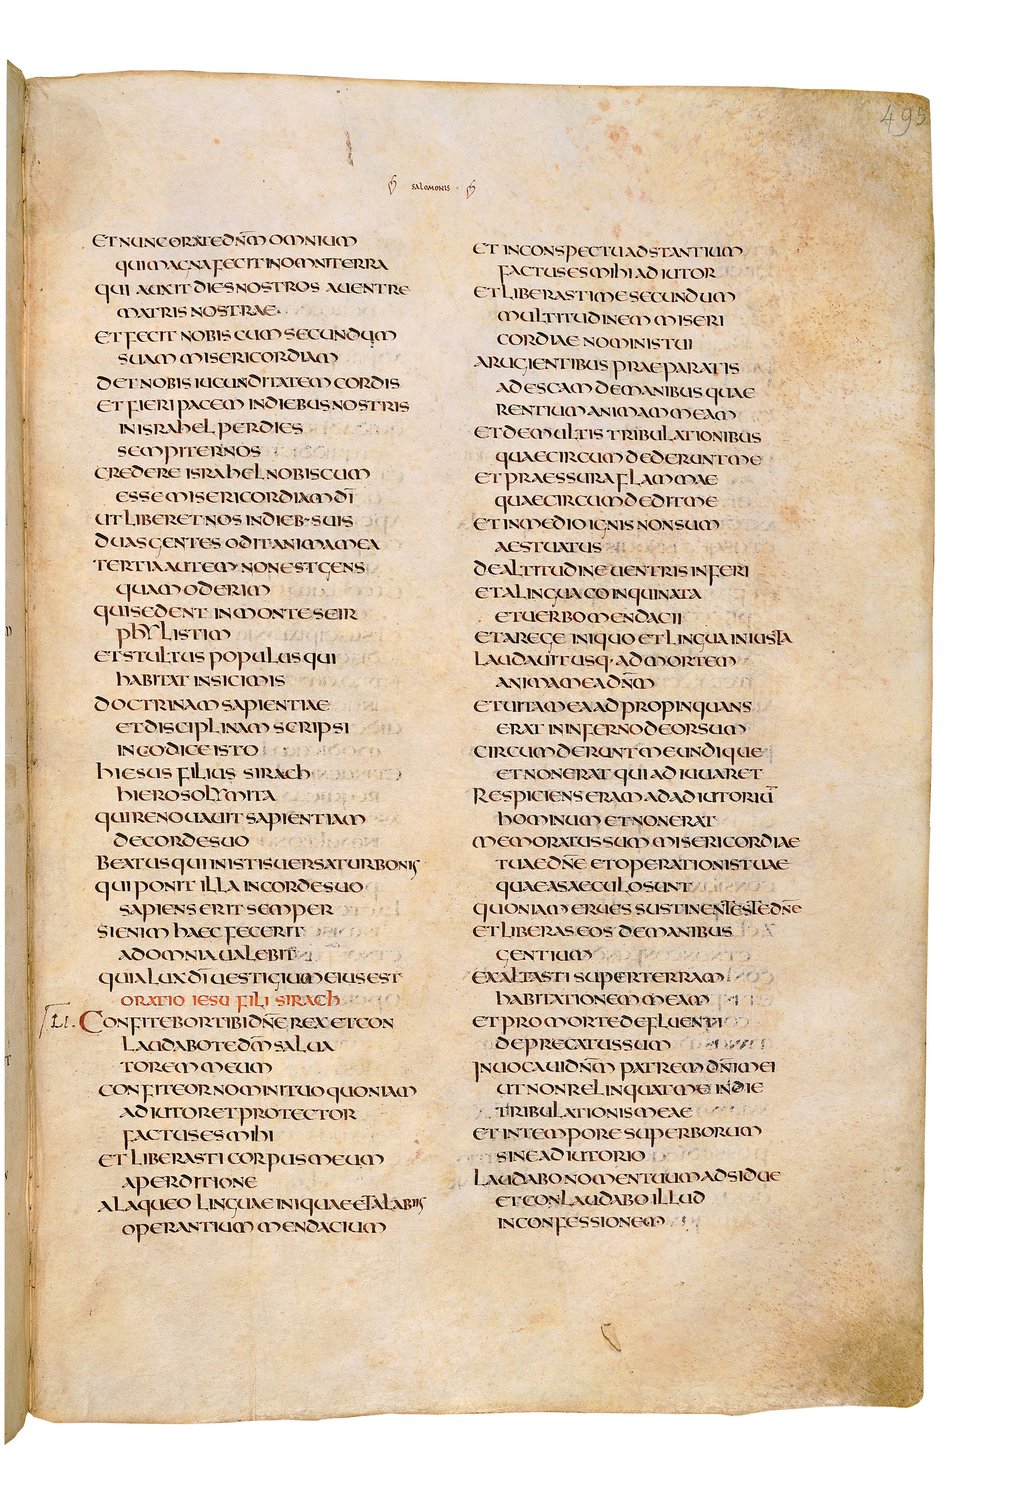 495
SALOMONIS ·
ET NUNC ORATE DN̄M OMNIUM
QUI MAGNA FECIT IN OMNI TERRA
QUI AUXIT DIES NOSTROS A UENTRE
MATRIS NOSTRAE·
ET FECIT NOBISCUM SECUNDUM
SUAM MISERICORDIAM
DET NOBIS IUCUNDITATEM CORDIS
ET FIERI PACEM IN DIEBUS NOSTRIS
IN ISRAHEL PER DIES
SEMPITERNOS
CREDERE ISRAHEL NOBISCUM
ESSE MISERICORDIAM DĪ
UT LIBERET NOS IN DIEB· SUIS
DUAS GENTES ODIT ANIMA MEA
TERTIA AUTEM NON EST GENS
QUAM ODERIM
QUI SEDENT IN MONTE SEIR
PHYLISTIM
ET STULTUS POPULUS QUI
HABITAT IN SICIMIS
DOCTRINAM SAPIENTIAE
ET DISCIPLINAM SCRIPSI
IN CODICE ISTO
HIESUS FILIUS SIRACH
HIEROSOLYMITA
QUI RENOUAUIT SAPIENTIAM
DE CORDE SUO
BEATUS QUI IN ISTIS UERSATUR BONIS
QUI PONIT ILLA IN CORDE SUO
SAPIENS ERIT SEMPER
SI ENIM HAEC FECERIT
AD OMNIA UALEBIT
QUIA LUX DĪ UESTIGIUM EIUS EST
ORATIO IESU FILI SIRACH
LI. CONFITEBOR TIBI DN̄E REX ET CON
LAUDABO TE DM̄ SALUA
TOREM MEUM
CONFITEOR NOMINI TUO QUONIAM
ADIUTOR ET PROTECTOR
FACTUS ES MIHI
ET LIBERASTI CORPUS MEUM
A PERDITIONE
A LAQUEO LINGUAE INIQUAE ET A LABIIS
OPERANTIUM MENDACIUM
ET IN CONSPECTU ADSTANTIUM
FACTUS ES MIHI ADIUTOR
ET LIBERASTI ME SECUNDUM
MULTITUDINEM MISERI
CORDIAE NOMINIS TUI
A RUGIENTIBUS PRAEPARATIS
AD ESCAM DE MANIBUS QUAE
RENTIUM ANIMAM MEAM
ET DE MULTIS TRIBULATIONIBUS
QUAE CIRCUMDEDERUNT ME
ET PRAESSURA FLAMMAE
QUAE CIRCUMDEDIT ME
ET IN MEDIO IGNIS NON SUM
AESTUATUS
DE ALTITUDINE UENTRIS INFERI
ET A LINGUA COINQUINATA
ET UERBO MENDACII
ET A REGE INIQUO ET LINGUA INIUSTA
LAUDAUIT USQ· AD MORTEM
ANIMA MEA DN̄M
ET UITA MEA ADPROPINQUANS
ERAT IN INFERNO DEORSUM
CIRCUMDERUNT ME UNDIQUE
ET NON ERAT QUI ADIUUARET
RESPICIENS ERAM AD ADIUTORIŪ
HOMINUM ET NON ERAT
MEMORATUS SUM MISERICORDIAE
TUAE DN̄E ET OPERATIONIS TUAE
QUAE A SAECULO SUNT
QUONIAM ERUES SUSTINENTES TE DN̄E
ET LIBERAS EOS DE MANIBUS
GENTIUM
EXALTASTI SUPER TERRAM
HABITATIONEM MEAM
ET PRO MORTE DEFLUENTI
DEPRECATUS SUM
INUOCAUI DN̄M PATREM DN̄I MEI
UT NON RELINQUAT ME IN DIE
TRIBULATIONIS MEAE
ET IN TEMPORE SUPERBORUM
SINE ADIUTORIO
LAUDABO NOMEN TUUM ADSIDUE
ET CONLAUDABO ILLUD
IN CONFESSIONEM